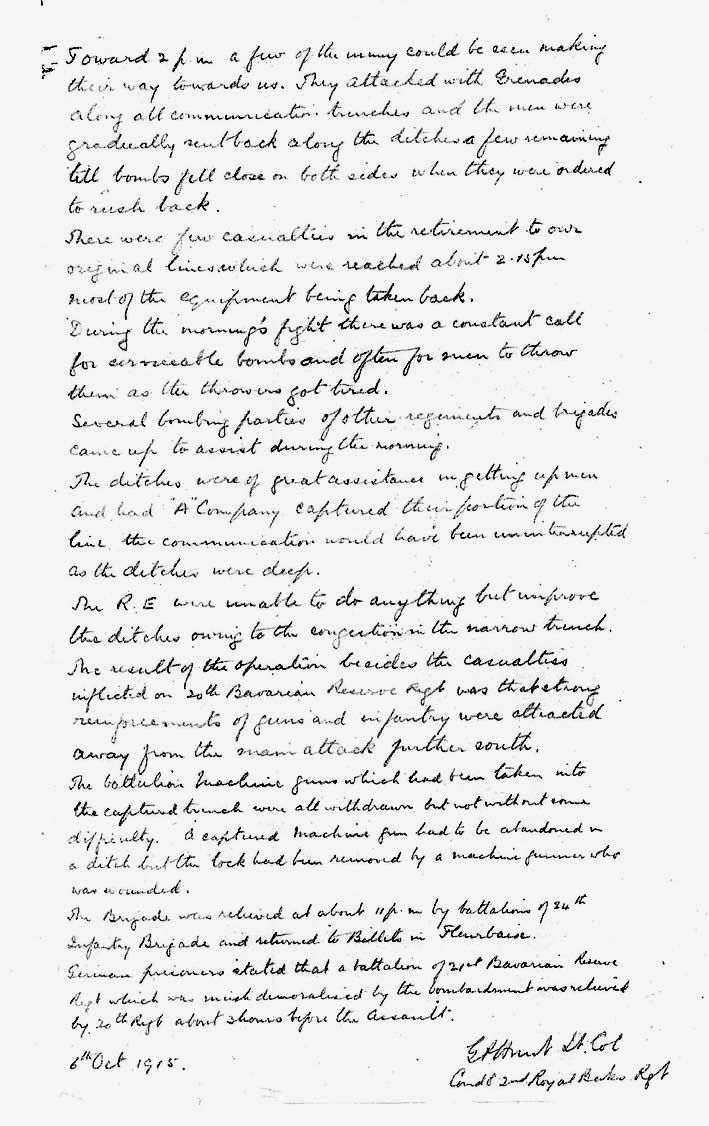 Toward 2 p.m a few of the enemy could be seen making
their way towards us. They attacked with Grenades
along all communication trenches and the men were
gradually sent back along the ditches a few remaining
till bombs fell close on both sides when they were ordered
to rush back.
There were few casualties in the retirement to our
original lines which were reached about 2.15 pm
most of the equipment being taken back.
During the morning's fight there was a constant call
for serviceable bombs and often for men to throw
them as the throwers got tired.
Several bombing parties of other regiments and brigades
came up to assist during the morning.
The ditches were of great assistance in getting up men
and had "A" Company captured their portion of the
line the communication would have been uninterrupted
as the ditches were deep.
The R.E were unable to do anything but improve
the ditches owing to the congestion in the narrow trench.
The result of the operation besides the casualties
inflicted on 20th Bavarian Reserve Regt was that strong
reinforcements of guns and infantry were attracted
away from the main attack further south.
The battalion machine guns which had been taken into
the captured trench were all withdrawn but not without some
difficulty. A captured machine gun had to be abandoned in
a ditch but the lock had been removed by a machine gunner who
was wounded.
The Brigade was relieved at about 11 p.m by battalions of 24th
Infantry Brigade and returned to Billets in Fleurbaix.
German prisoners stated that a battalion of 21st Bavarian Reserve
Regt which was much demoralised by the bombardment was relieved
by 20th Regt about 3 hours before the Assault.
6th Oct 1915.
G P S Hunt Lt. Col
Comdg 2nd Royal Berks. Rgt